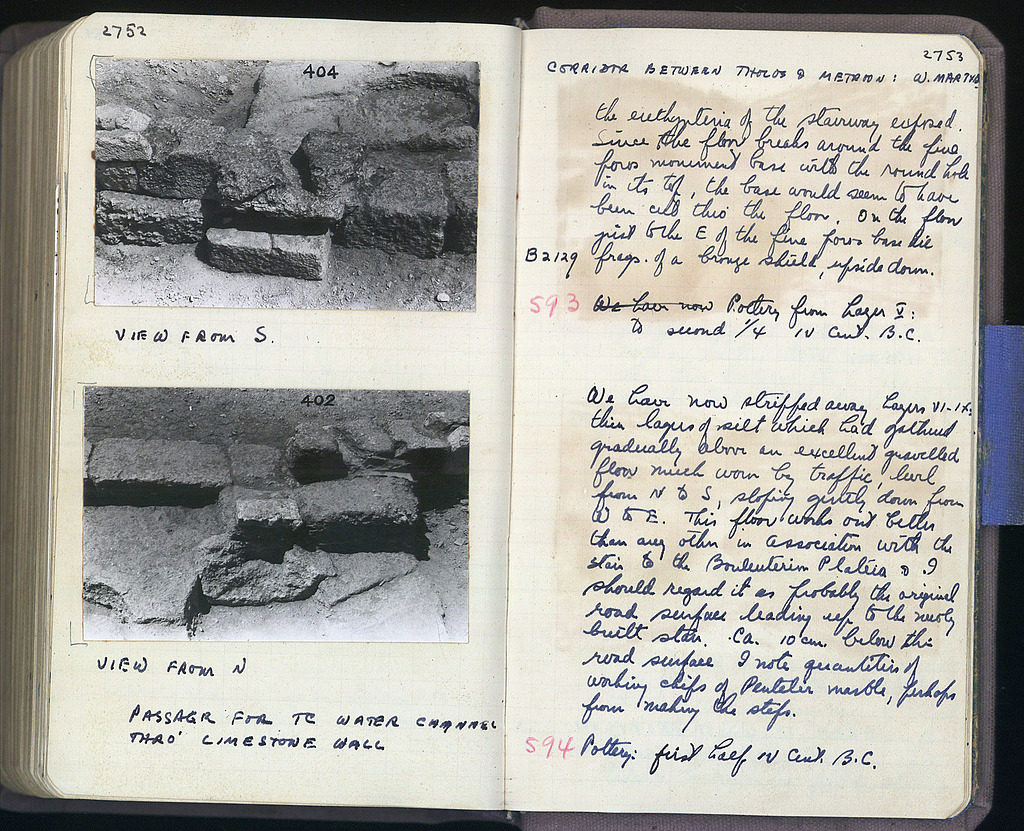 2752
404
VIEW FROM S.
402
VIEW FROM N
PASSAGE FOR TC WATER CHANNEL
THRO' LIMESTONE WALL
2753
CORRIDOR BETWEEN THOLOS & METROON: W. MARTYR
the euthynteria of the stairway exposed.
Since the floor breaks around the fine
poros monument base with the round hole
in its top, the base would seem to have
been cut thro' the floor. On the floor
just to the E of the fine poros base lie
B2129 frags. of a bronze shield, upside down.
593 We have now Pottery from Layer V:
to second 1/4 IV Cent. B.C.
We have now stripped away Layers VI-IX:
thin layers of silt which had gathered
gradually above an excellent gravelled
floor much worn by traffic, level
from N to S, sloping gently down from
W to E. This floor works out better
than any other in association with the
stair to the Bouleuterion Plateia & I
should regard it as probably the original
road surface leading up to the newly
built stair. Ca. 10 cm. below this
road surface I note quantities of
working chips of Pentelic marble, perhaps
from making the steps.
594 Pottery: first half IV Cent. B.C.